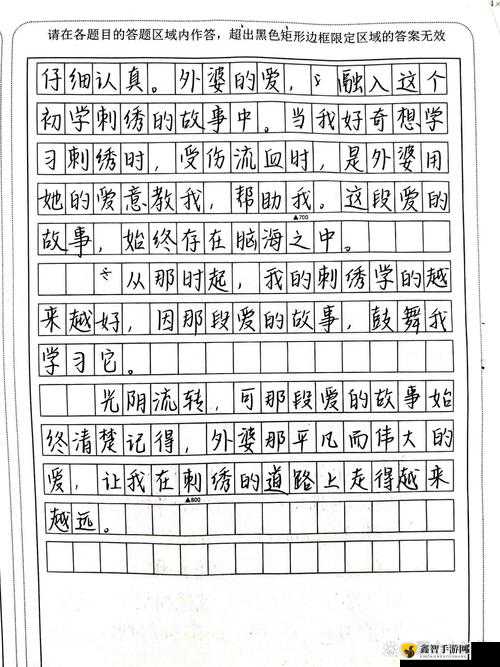 请在各题目的答题区域内作答，超出黑色矩形边框限定区域的答案无效
仔细认真。外婆的爱，融入这个
初学刺绣的故事中。当我好奇想学
习刺绣时，受伤流血时，是外婆用
她的爱意教我，帮助我。这段爱的
▲700
故事，始终存在脑海之中。
从那时起，我的刺绣学的越
来越好，因那段爱的故事，鼓舞我
学习它。
光阴流转，可那段爱的故事始
终清楚记得，外婆那平凡而伟大的
爱，让我在刺绣的道路上走得越来
▲800
越远。
鑫智手游网